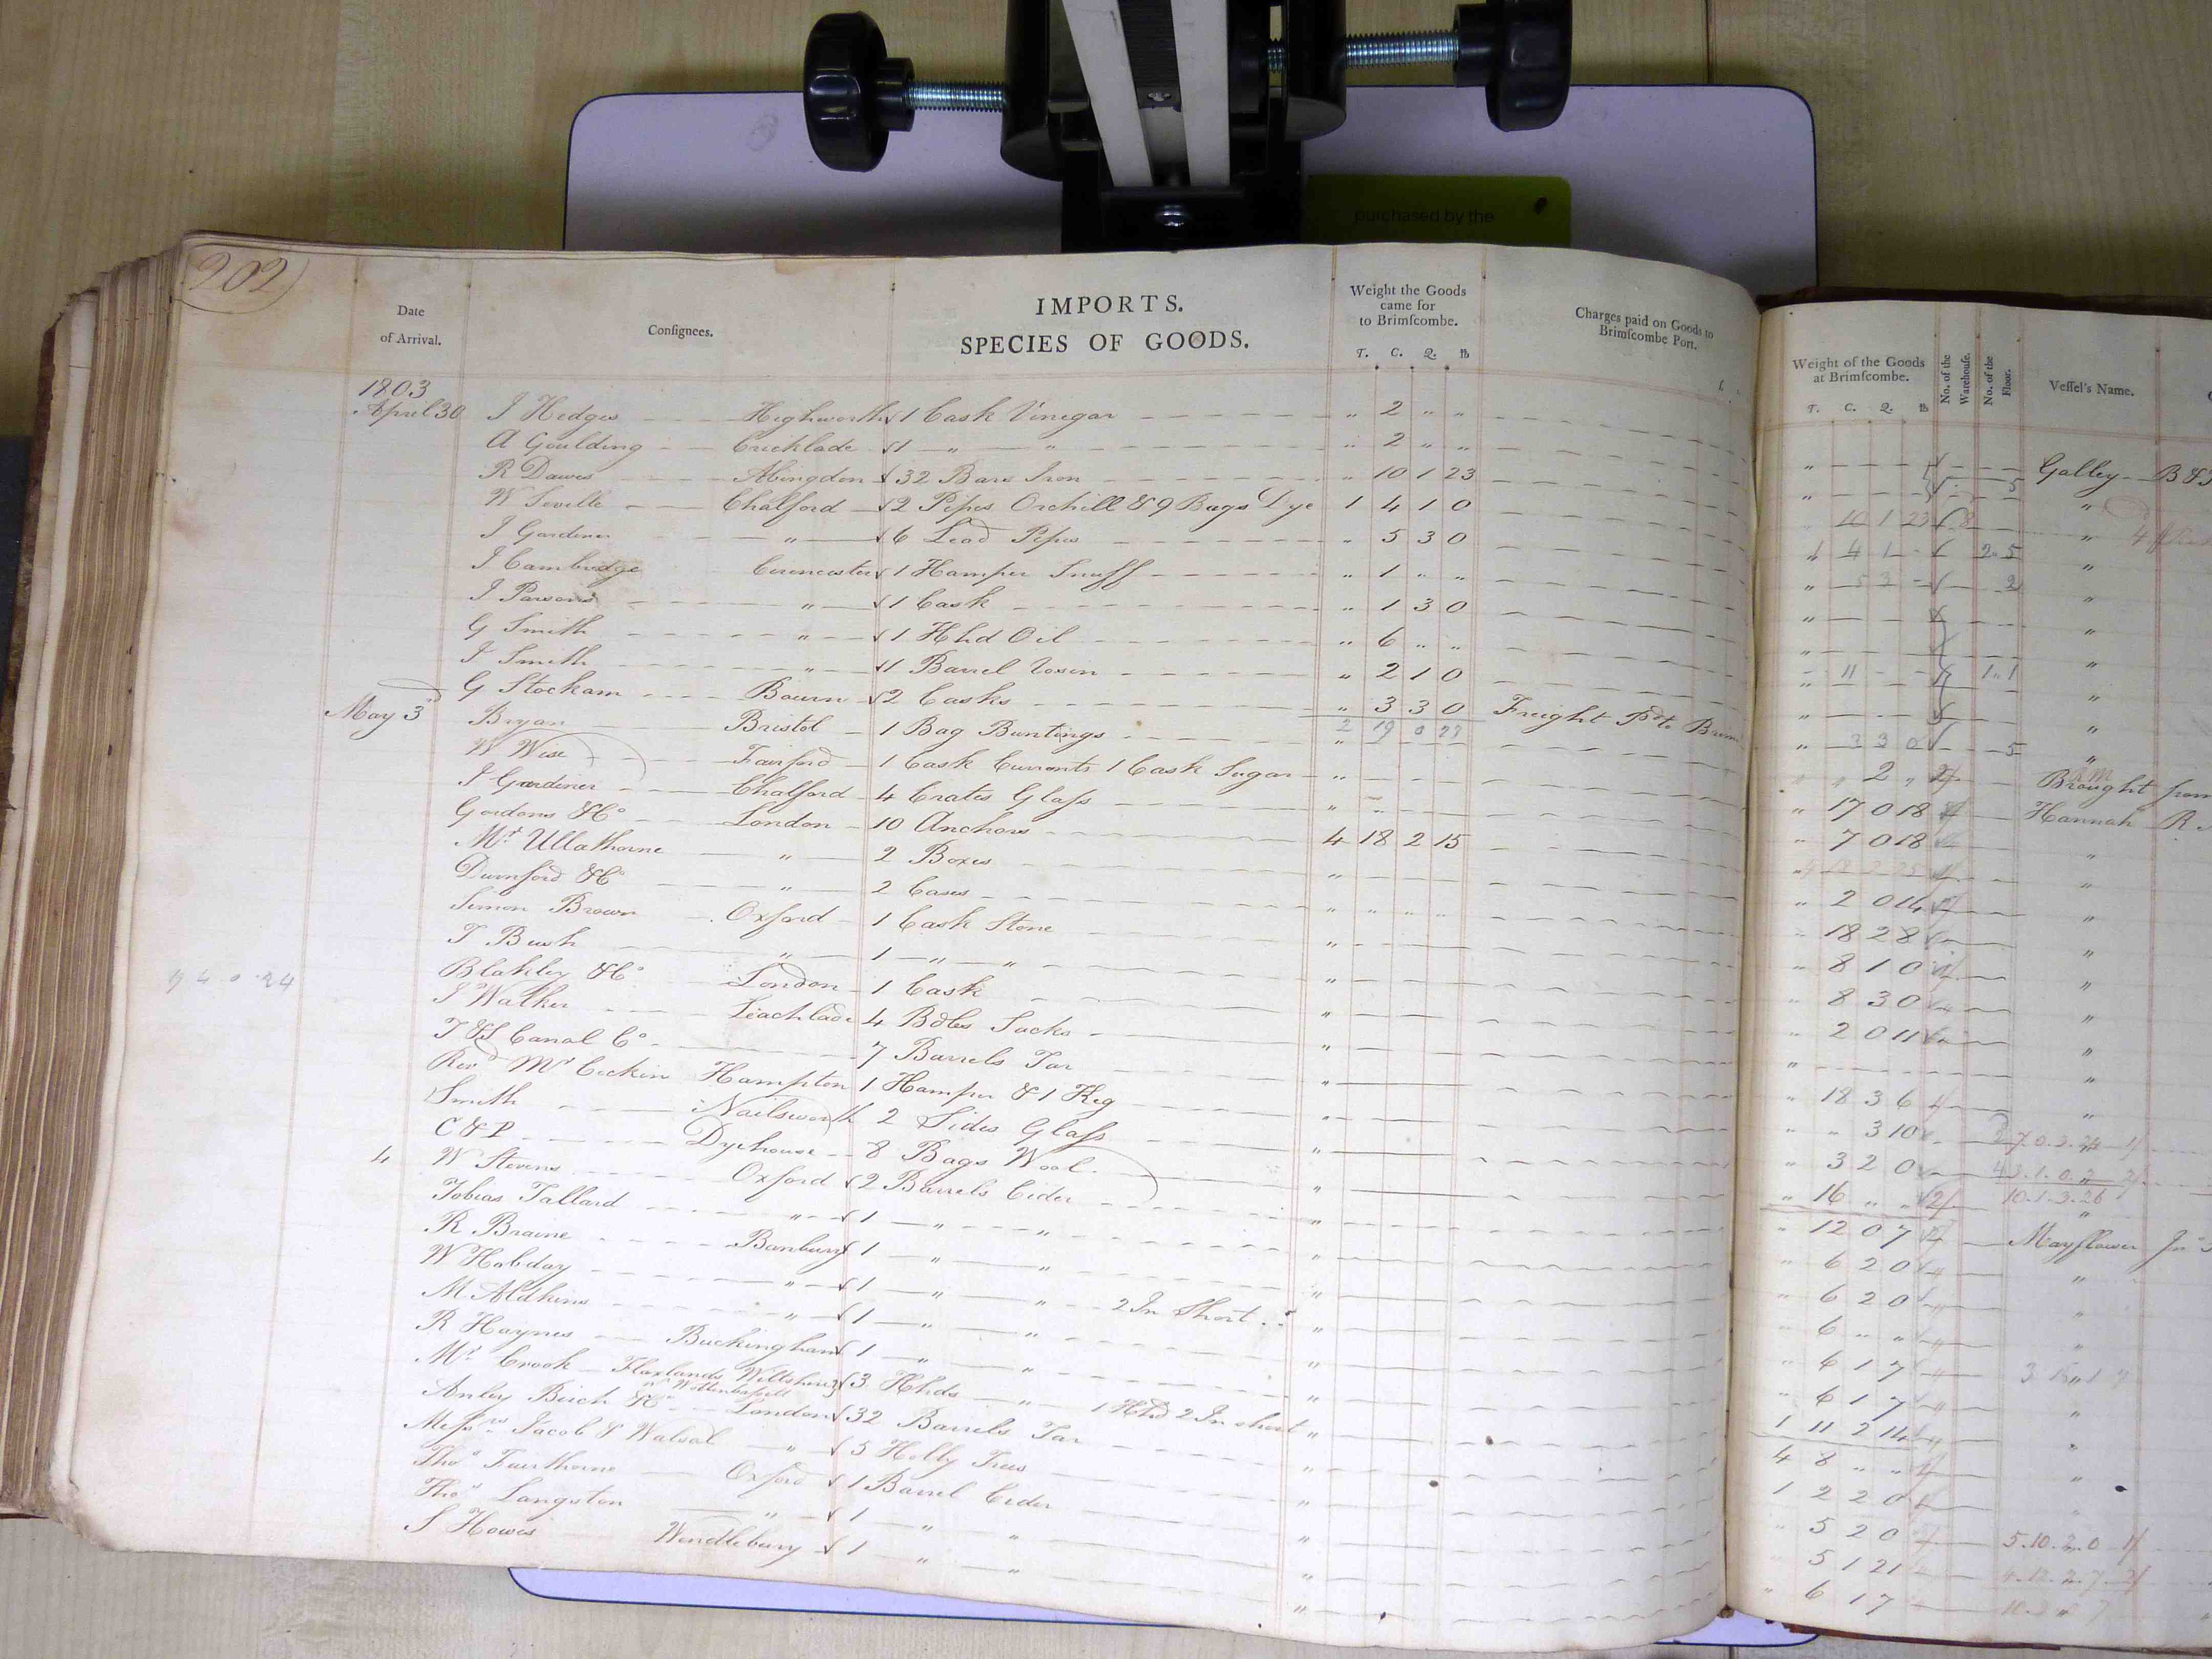 purchased by the
202
Date of Arrival. Consignees. IMPORTS. SPECIES OF GOODS. Weight the Goods came for to Brimscombe. T. C. Q. lb Charges paid on Goods to Brimscombe Port. Weight of the Goods at Brimscombe. T. C. Q. lb No. of the Warehouse. No. of the Floor. Vessel's Name.
1803
April 30 J Hedges Highworth 1 Cask Vinegar " 2 " " Galley B &
A Goulding Cricklade 1 " " " 2 " " 5 "
R Dawes Abingdon 32 Bars Iron " 10 1 23 10 1 23 "
W Seville Chalford 2 Pipes Orchill & 9 Bags Dye 1 4 1 0 4 1 2 " 5 "
J Gardiner " 6 Lead Pipes " 5 3 0 5 3 2 "
J Cambridge Cirencester 1 Hamper Snuff " 1 " " "
J Parsons " 1 Cask " 1 3 0 "
G Smith " 1 Hhd Oil " 6 " " 11 1 " 1 "
J Smith " 1 Barrel Rosin " 2 1 0 "
G Stockam Bourn 2 Casks " 3 3 0 Freight Pd to Brim " 3 3 0 5 "
2 19 0 23
May 3d Bryan Bristol 1 Bag Buntings " " " 2 " Brought from
W Wise Fairford 1 Cask Currants 1 Cask Sugar " " 17 0 18 Hannah R
J Gardiner Chalford 4 Crates Glass " " 7 0 18 "
Gordons & Co London 10 Anchors 4 18 2 15 "
Mr Ullathorne " 2 Boxes " " 2 0 14 "
Durnford & Co " 2 Cases " " " " " 18 2 8 "
Simon Brown Oxford 1 Cask Stone " " 8 1 0 "
T Bush " 1 " " " " 8 3 0 "
Blakley & Co London 1 Cask " " 2 0 11 "
9 4 0 24
J Walker Leachlade 4 Bdles Sacks " " "
T & S Canal Co 7 Barrels Tar " " 18 3 6 "
Revd Mr Cockin Hampton 1 Hamper & 1 Keg " " " 3 10
Smith Nailsworth 2 Sides Glass " " 3 2 0
C & P Dyehouse 8 Bags Wool " " 16 " " 10.1.3.26 "
4 W Stevens Oxford 2 Barrels Cider " " 12 0 7 Mayflower Jno
Tobias Tallard " 1 " " " " 6 2 0 "
R Braine Banbury 1 " " " " 6 2 0 "
W Hobday " 1 " " 2 In Short " " 6 " " "
M Aldkins " 1 " " " " 6 1 7 3 15 " 1
R Haynes Buckingham 1 " " " " 6 1 7 "
Mr Crook Flaxlands Wiltshire 3 Hhds " 1 Hhd 2 In short " 1 11 2 14 "
nr Wottenbassett
Anley Birch & Co London 32 Barrels Tar " 4 8 " " "
Messrs Jacob & Walsal " 5 Holly Trees " 1 2 2 0
Thos Fairthorne Oxford 1 Barrel Cider " " 5 2 0
Thos Langston " 1 " " " " 5 1 21
S Howes Wendlebury 1 " " " " 6 1 7